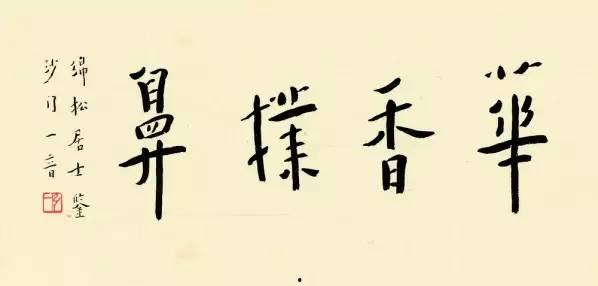 華香撲鼻
綿松居士鑒
沙门一音